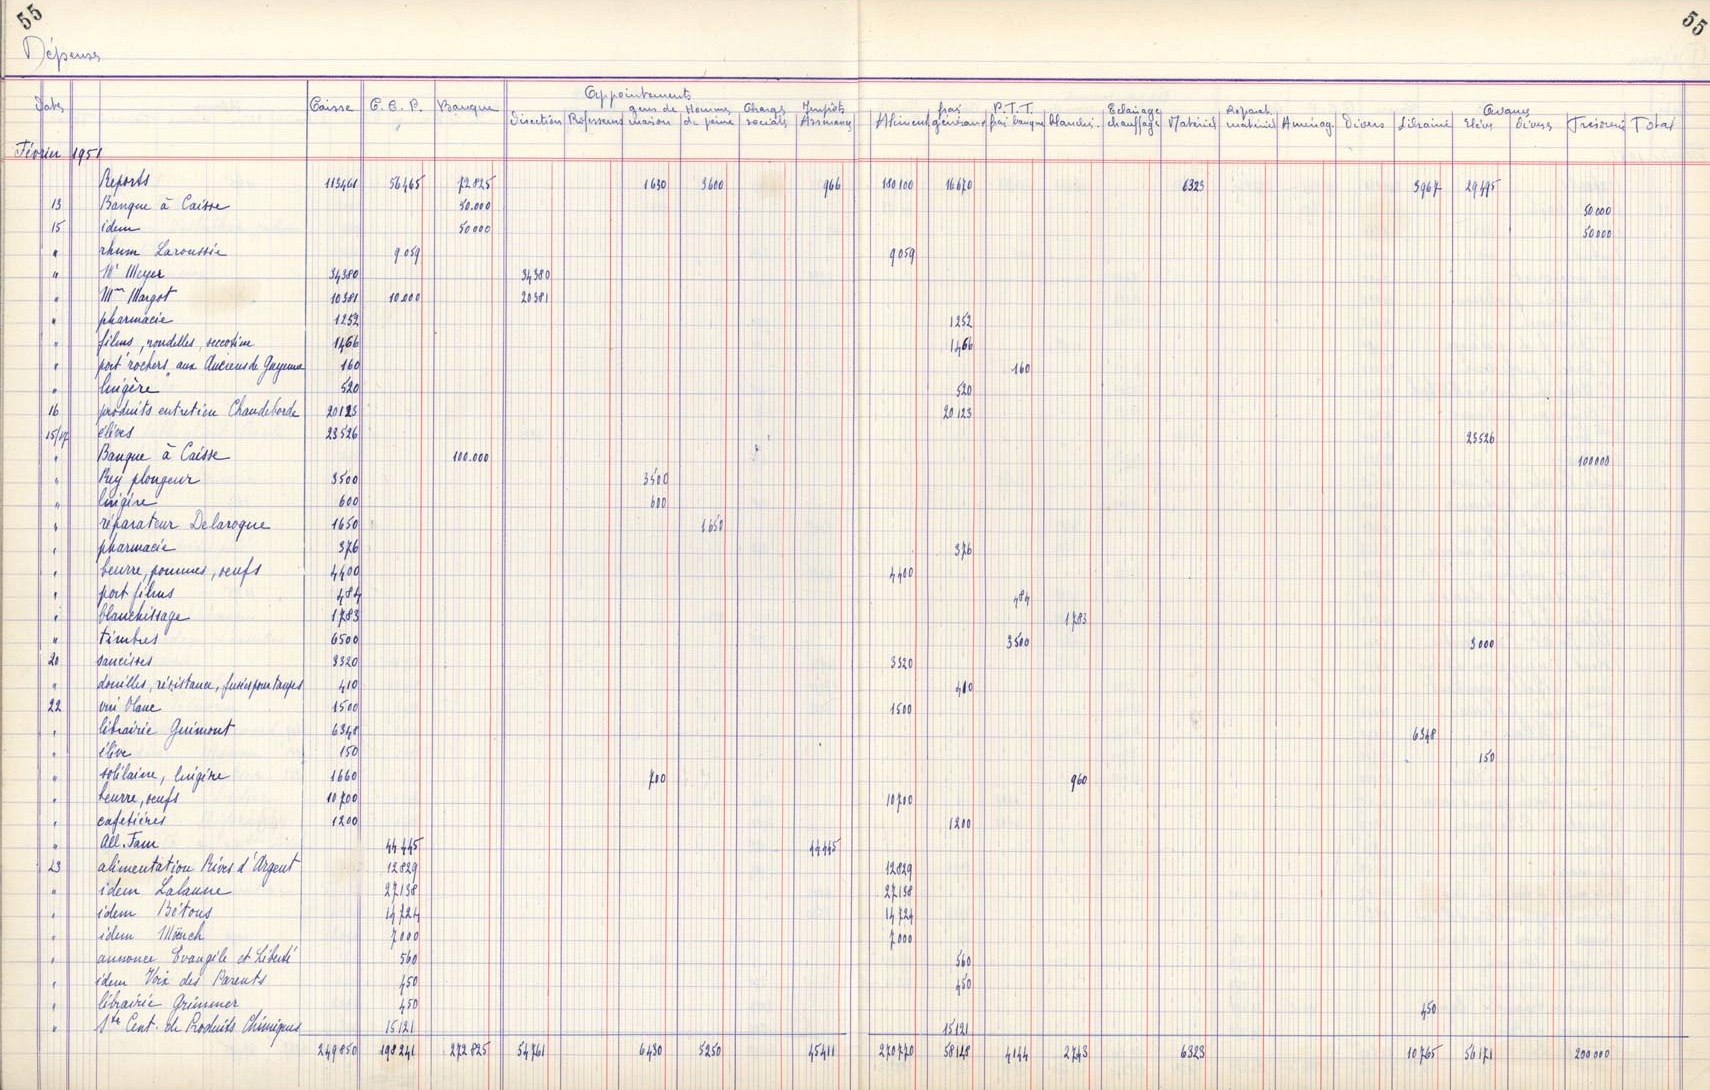 55 55
Dépenses
Appointements Avances
Date Caisse C.C.P. Banque Direction Professeurs gens de maison Hommes de peine Charges sociales Impôts Assurances Aliment. frais généraux P.T.T. frais banque Blanchis. Eclairage chauffage Matériel Réparat. matériel Aménag. Divers Librairie Elèves Divers Trésorerie Total
Février 1951
Reports 113461 56465 72825 1630 3600 966 180100 16670 6323 3967 29495
13 Banque à Caisse 50.000 50000
15 idem 50000 50000
" rhum Laroussie 9059 9059
" Mr Meyer 34380 34380
" Mme Margot 10381 10.000 20381
" pharmacie 1252 1252
" films, rondelles, seccotine 1466 1466
" port "rochers" aux Anciens de Guyenne 160 160
" lingère 520 520
16 produits entretien Chaudeborde 20123 20123
15/17 élèves 23526 23526
" Banque à Caisse 100.000 100000
" Rey plongeur 3500 3500
" lingère 600 600
" réparateur Delaroque 1650 1650
" pharmacie 376 376
" beurre, pommes, oeufs 4400 4400
" port films 484 484
" blanchissage 1783 1783
" timbres 6500 3500 3000
20 saucisses 3320 3320
" douilles, résistance, fusées pour tanges 410 410
22 vin blanc 1500 1500
" librairie Guimont 6348 6348
" élève 150 150
" solilaine, lingère 1660 700 960
" beurre, oeufs 10700 10700
" cafetières 1200 1200
" All. Fam 44445 44445
23 alimentation Rives d'Argent 12829 12829
" idem Lalanne 27138 27138
" idem Bétous 14724 14724
" idem Mönch 7000 7000
" annonce Evangile et Liberté 560 560
" idem Voix des Parents 450 450
" librairie Grimmer 450 450
" Sté Cent. de Produits Chimiques 15121 15121
249850 198241 272825 54761 6430 5250 45411 270770 58148 4144 2743 6323 10765 56171 200000